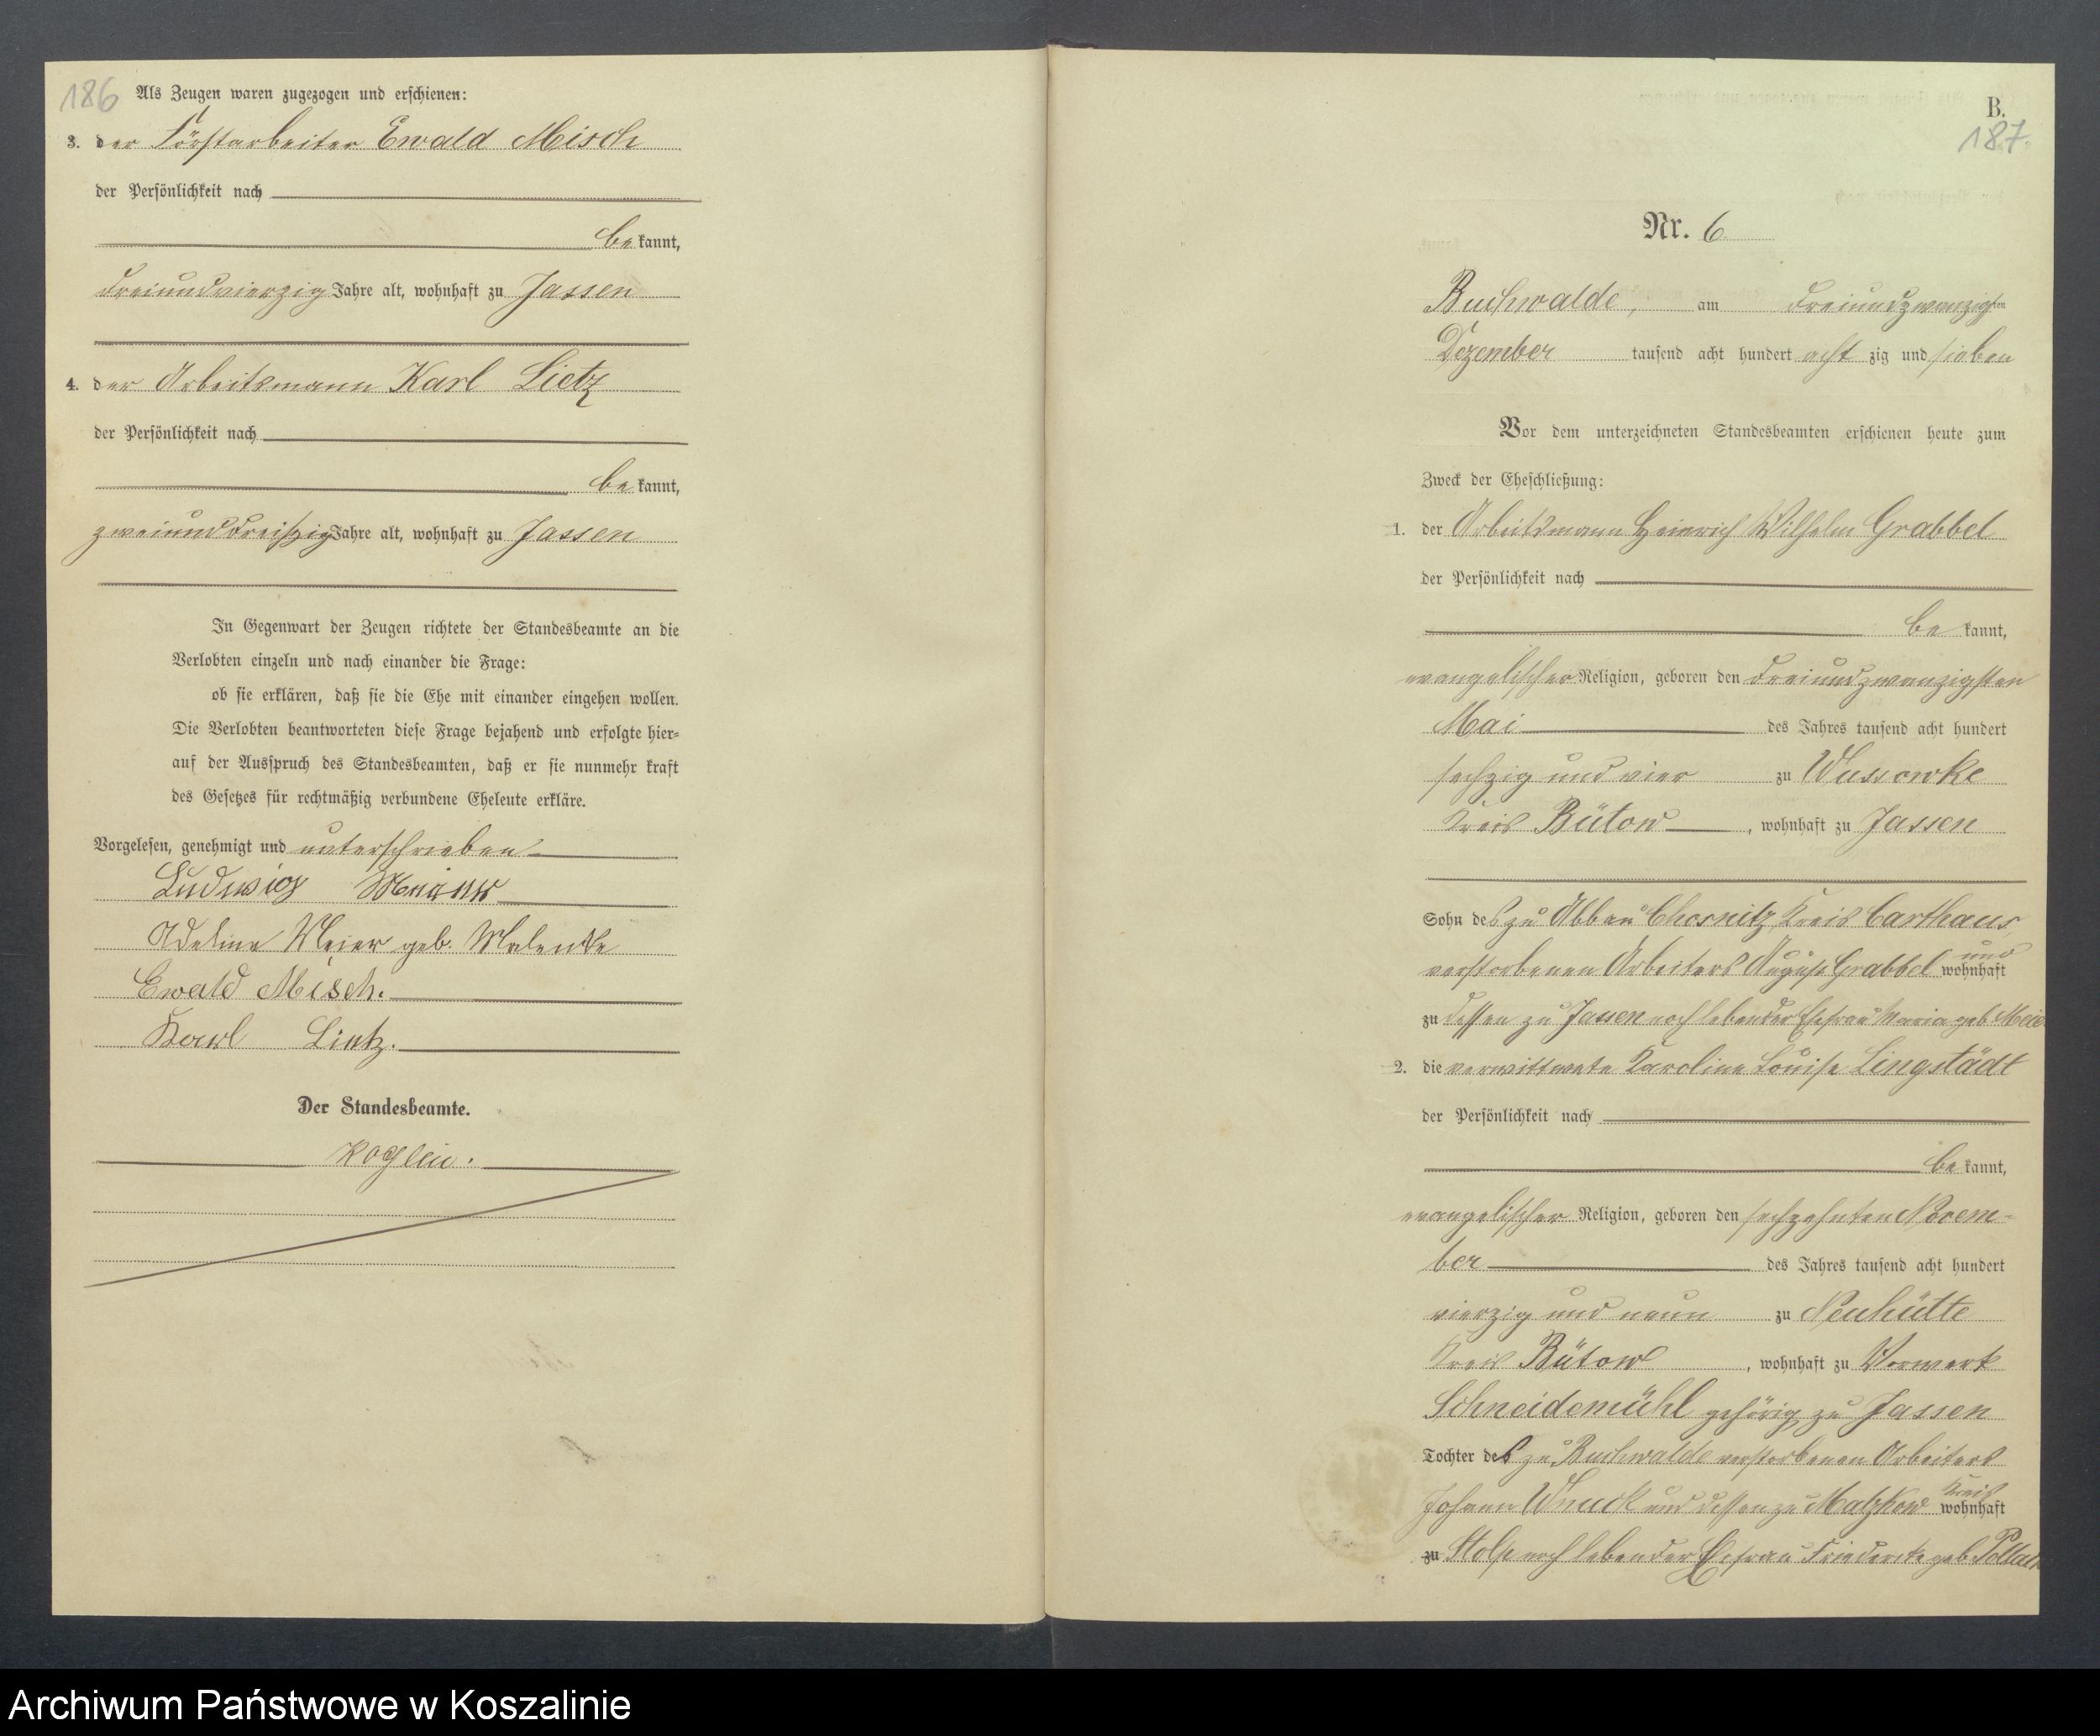 186
Als Zeugen waren zugezogen und erschienen:
3. der Forstarbeiter Ewald Misch
der Persönlichkeit nach
bekannt,
dreiundvierzig Jahre alt, wohnhaft zu Jassen
4. der Arbeitsmann Karl Lietz
der Persönlichkeit nach
bekannt,
zweiunddreißig Jahre alt, wohnhaft zu Jassen
In Gegenwart der Zeugen richtete der Standesbeamte an die
Verlobten einzeln und nach einander die Frage:
ob sie erklären, daß sie die Ehe mit einander eingehen wollen.
Die Verlobten beantworteten diese Frage bejahend und erfolgte hier-
auf der Ausspruch des Standesbeamten, daß er sie nunmehr kraft
des Gesetzes für rechtmäßig verbundene Eheleute erkläre.
Vorgelesen, genehmigt und unterschrieben
Ludwig
Adeline Meier geb. Malentke
Ewald Misch.
Karl Lietz.
Der Standesbeamte.
B.
187.
Nr. 6
Buchwalde, am dreiundzwanzigsten
Dezember tausend acht hundert acht zig und sieben
Vor dem unterzeichneten Standesbeamten erschienen heute zum
Zweck der Eheschließung:
1. der Arbeitsmann Heinrich Wilhelm Grabbel
der Persönlichkeit nach
be kannt,
evangelischer Religion, geboren den dreiundzwanzigsten
Mai des Jahres tausend acht hundert
sechzig und vier zu Wussowke
Kreis Bütow, wohnhaft zu Jassen
Sohn des zu Abbau Chosnitz Kreis Carthaus
verstorbenen Arbeiters August Grabbel und wohnhaft
zu dessen zu Jassen noch lebender Ehefrau Maria geb. Meier
2. die verwittwete Karoline Louise Lingstädt
der Persönlichkeit nach
bekannt,
evangelischer Religion, geboren den sechzehnten Novem-
ber des Jahres tausend acht hundert
vierzig und neun zu Neuhütte
Kreis Bütow, wohnhaft zu Vorwerk
Schneidemühl gehörig zu Jassen
Tochter des zu Buchwalde verstorbenen Arbeiters
Johann Wnuck und dessen zu Malzkow Kreis wohnhaft
zu Stolp noch lebender Ehefrau Friedericke geb.
Archiwum Państwowe w Koszalinie